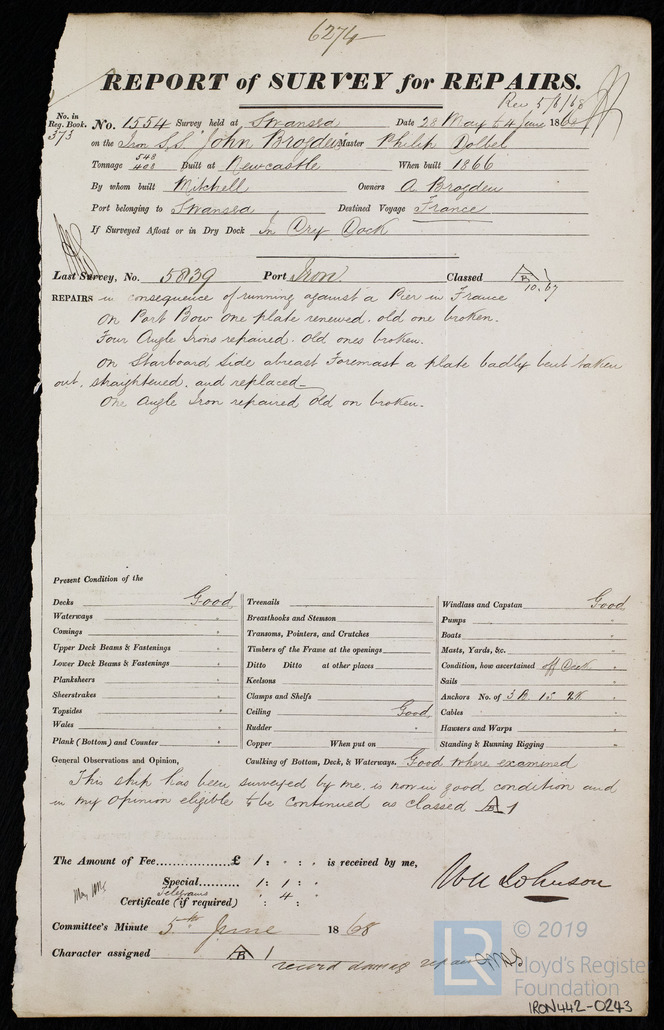 6274
REPORT of SURVEY for REPAIRS.
Rec 5/6/68
No. in Reg. Book. 373
No. 1554 Survey held at Swansea Date 28 May to 4 June 1868
on the Iron S.S. "John Brogden" Master Philip Dolbel
Tonnage 548 408 Built at Newcastle When built 1866
By whom built Mitchell Owners A Brogden
Port belonging to Swansea Destined Voyage France
If Surveyed Afloat or in Dry Dock In Dry Dock
Last Survey, No. 5839 Port Iron Classed A B 1
10.67
REPAIRS in consequence of running against a Pier in France
On Port Bow one plate renewed. old one broken.
Four Angle Irons repaired. old ones broken.
On Starboard Side abreast Foremast a plate badly bent taken
out, straightened, and replaced
One Angle Iron repaired old on broken.
Present Condition of the
Decks Good
Waterways "
Comings "
Upper Deck Beams & Fastenings "
Lower Deck Beams & Fastenings "
Planksheers "
Sheerstrakes "
Topsides "
Wales "
Plank (Bottom) and Counter "
Treenails
Breasthooks and Stemson
Transoms, Pointers, and Crutches
Timbers of the Frame at the openings
Ditto Ditto at other places
Keelsons
Clamps and Shelfs
Ceiling Good
Rudder "
Copper When put on
Windlass and Capstan Good
Pumps "
Boats "
Masts, Yards, &c. "
Condition, how ascertained off Deck "
Sails "
Anchors No. of 3 B 1 S 2 K "
Cables "
Hawsers and Warps "
Standing & Running Rigging "
General Observations and Opinion, Caulking of Bottom, Deck, & Waterways. Good where examined
This ship has been surveyed by me, is now in good condition and
in my opinion eligible to be continued as classed A B 1
The Amount of Fee............... £ 1 : " : " is received by me,
Special.......... 1 : 1 : "
Telegrams
Certificate (if required) : 4 :
Wm Johnson
Committee's Minute 5th June 1868
Character assigned A B 1
record damage repairs
© 2019
LR
Lloyd's Register
Foundation
IRON442-0243